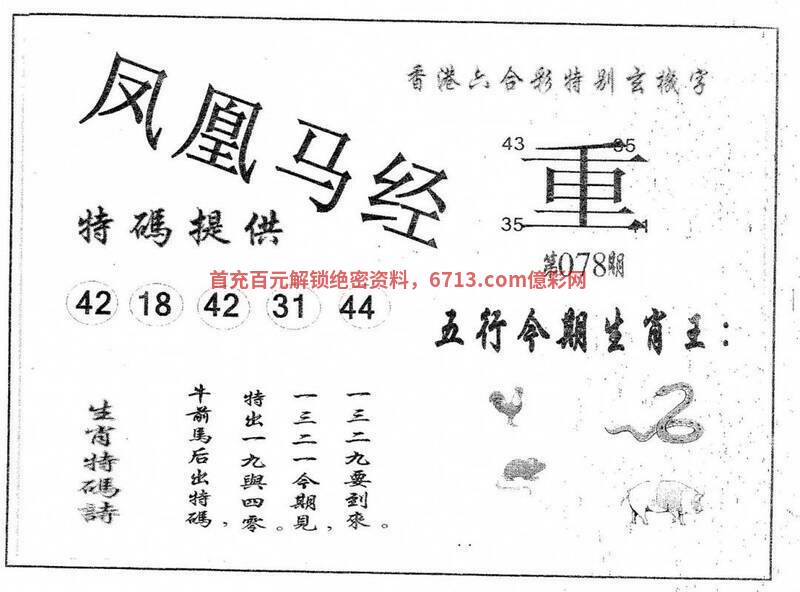 凤凰马经
香港六合彩特别玄機字
43
35
重
35
41
特碼提供
第078期
首充百元解锁绝密资料，6713.com億彩网
42 18 42 31 44
五行今期生肖王：
生肖特碼詩
牛前馬后出特碼，
特出一九與四零。
一三二一今期見，
一三二九要到來。